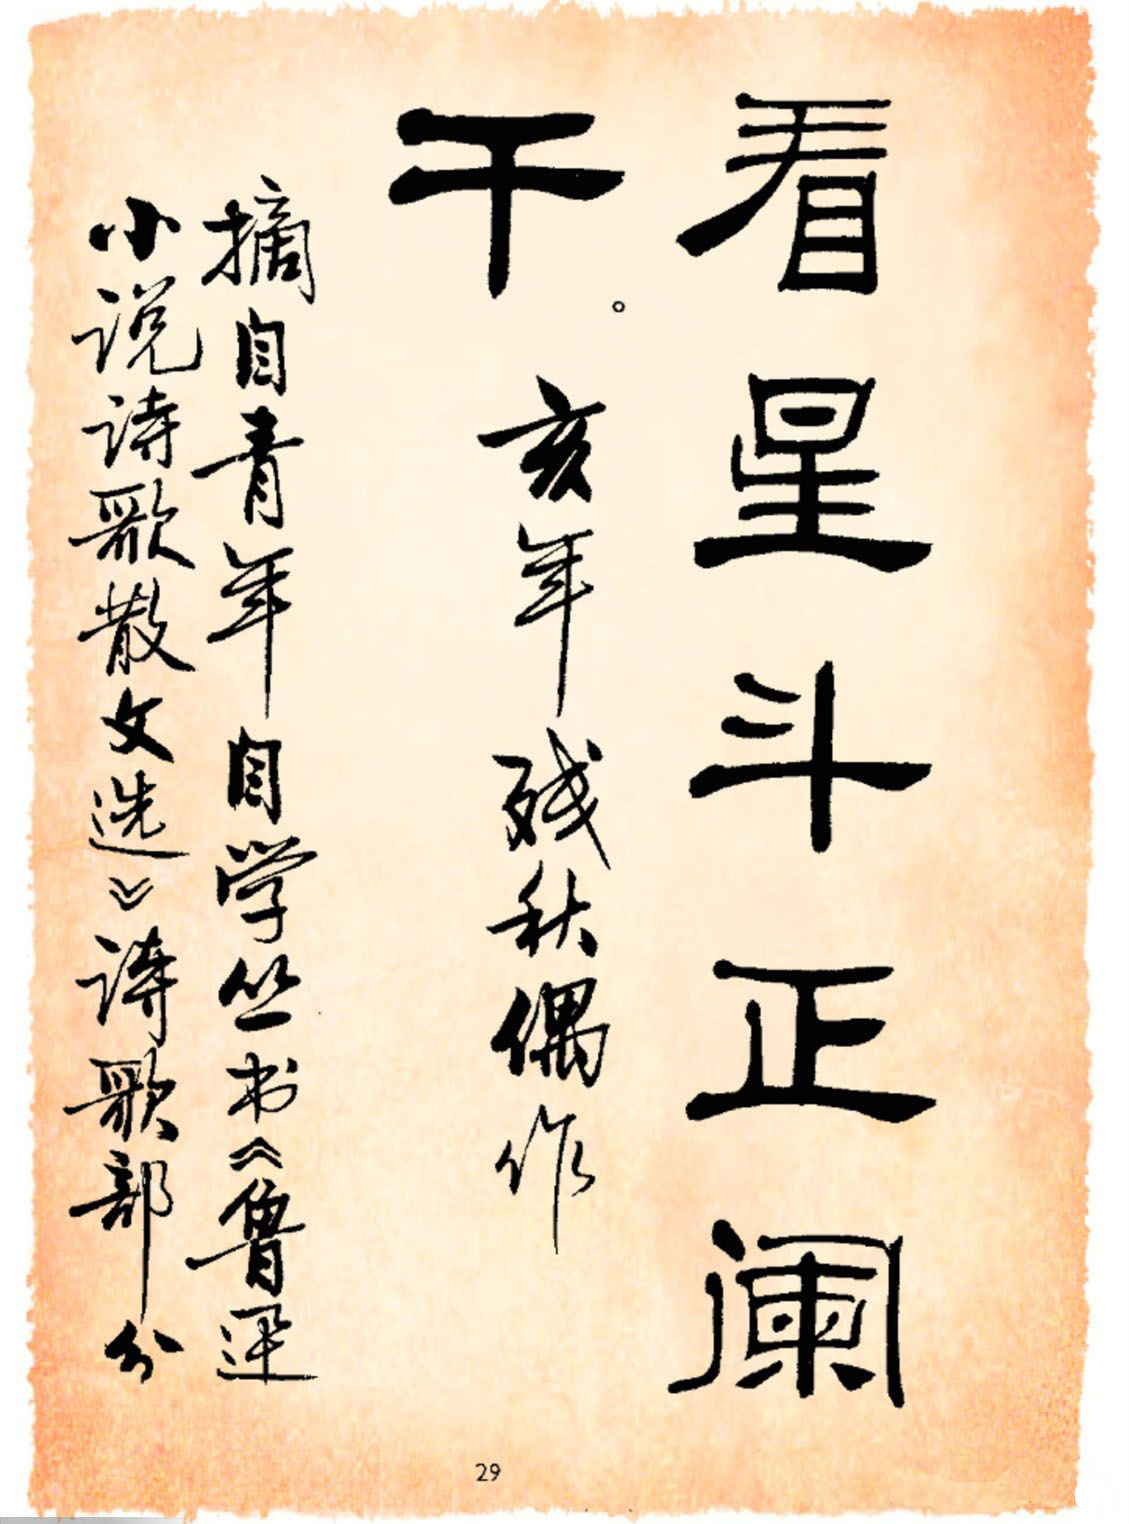 看星斗正阑
干。亥年残秋偶作
摘自青年自学丛书《鲁迅
小说诗歌散文选》诗歌部分
29